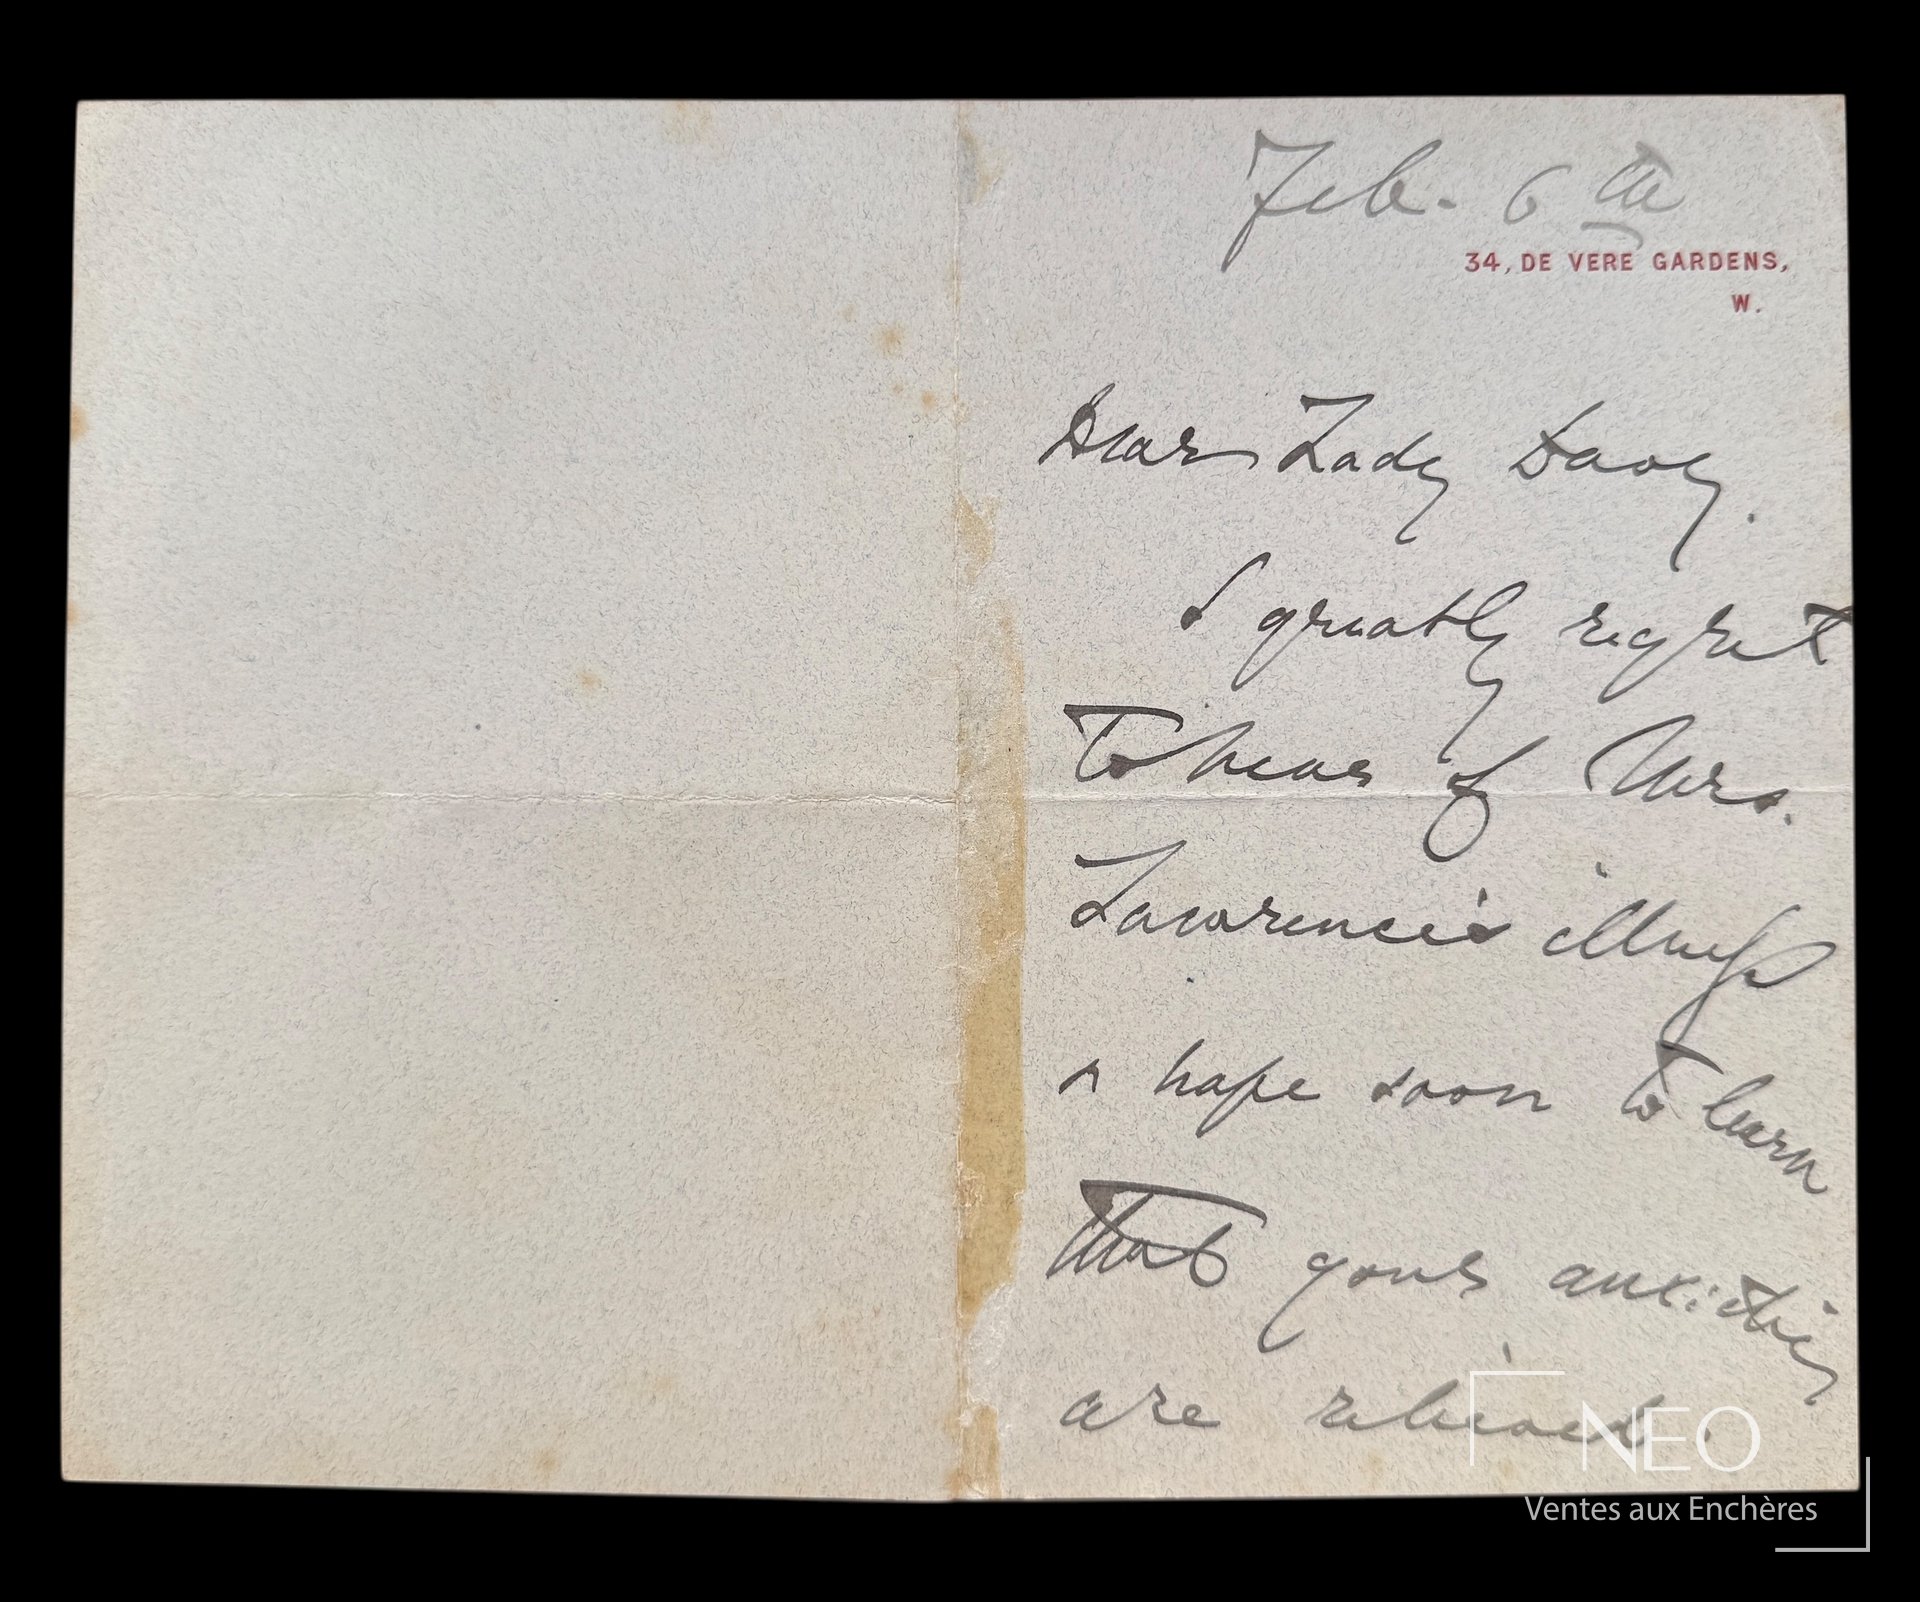 Feb. 6th
34, DE VERE GARDENS,
W.
Dear Lady Davy.
I greatly regret
to hear of Mrs.
Lawrence's illness
& hope soon to learn
that your anxieties
are relieved.
NEO
Ventes aux Enchères